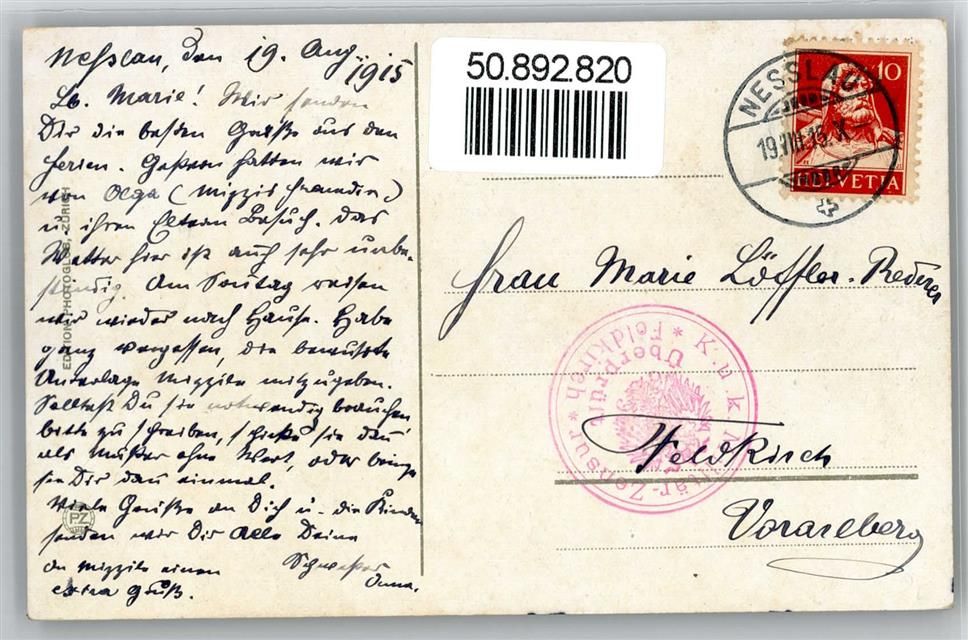 Nesslau, den 19. Aug. 1915
Lb. Marie! Wir senden
Dir die besten Grüße aus den
Ferien. Gestern hatten wir
von Olga (Mizzis Freundin)
u. ihren Eltern Besuch. Das
Wetter hier ist auch sehr unbe-
ständig. Am Sonntag reisen
wir wieder nach Hause. Habe
ganz vergessen, die bewusste
Unterlage Mizzile mitzugeben.
Solltest Du sie notwendig brauchen
bitte zu schreiben, schicke sie dann
als Muster ohne Wert, oder bringe
sie Dir dann einmal.
Viele Grüße an Dich u. die Kinder
senden wir Dir Alle Deine
Schwester
Anna.
An Mizzile einen
extra Gruß.
EDITION PHOTOGLOB, ZÜRICH
PZ
50.892.820
NESSLAU
19.VIII.15.X
10
HELVETIA
Frau Marie Löffler-Rederer
K.u.k. Militär-Zensur
Überprüft
Feldkirch
Feldkirch
Vorarlberg